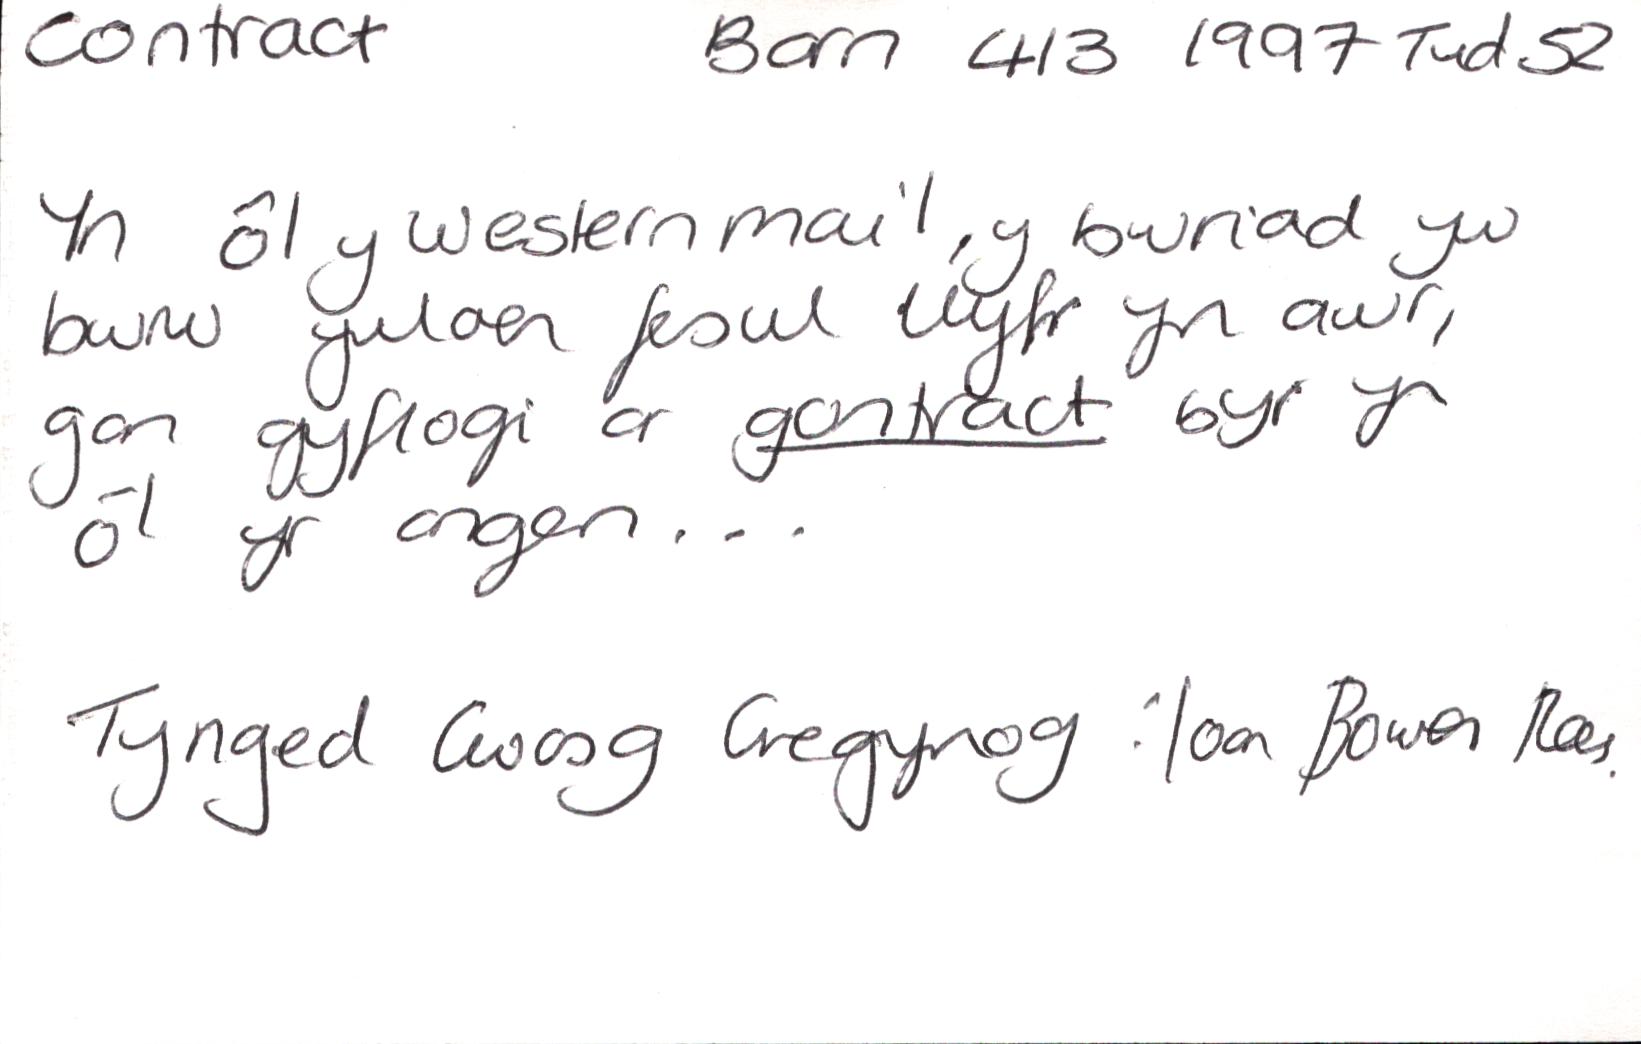 Contract Barn 413 1997 Tud 52
Yn ôl y Western mail, y bwriad yw
bwrw ymlaen fesul llyfr yn awr,
gan gyflogi ar gontract byr yn
ôl yr angen...
Tynged Gwasg Gregynog : Ioan Bowen Rees.